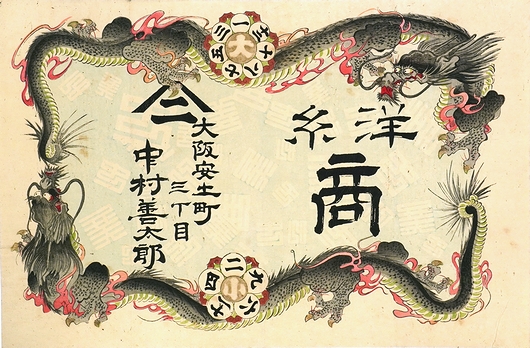 大
一 三 五 七 八 十
洋糸
商
大阪安土町
三丁目
中村善太郎
二 四 六 九